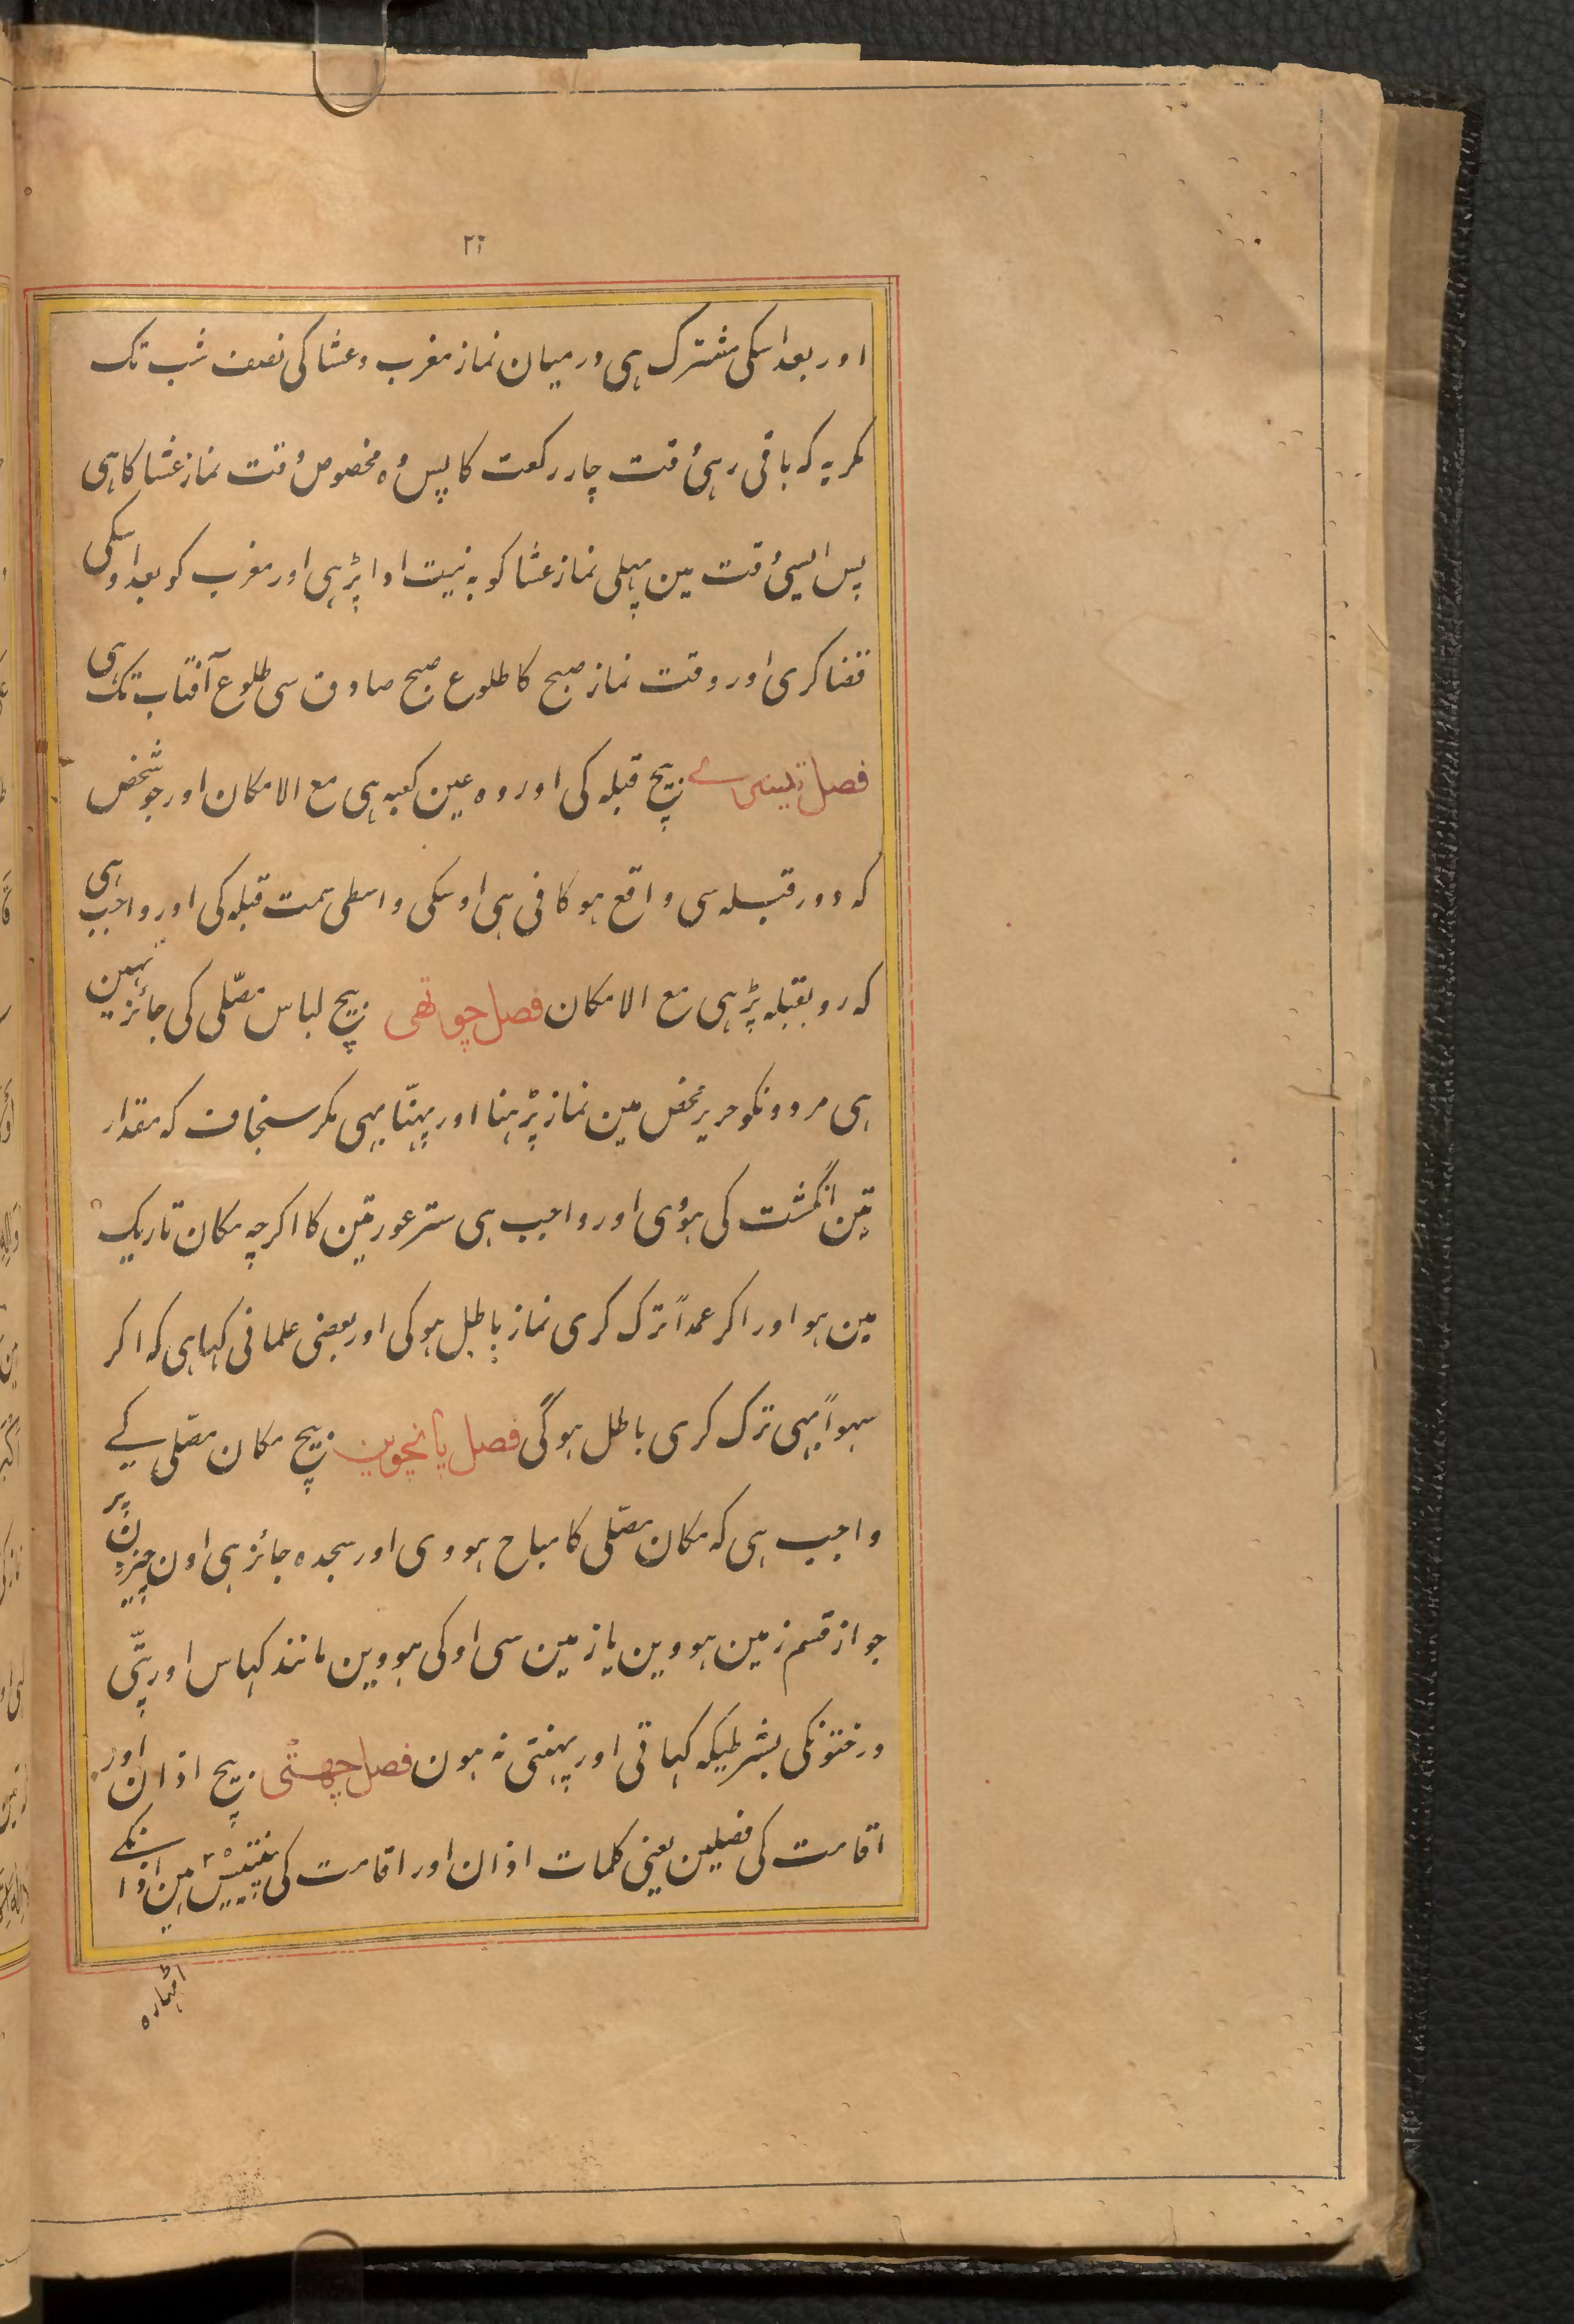 ۲۲
اور بعد اسکی مشترک ہی درمیان نماز مغرب و عشا کی نصف شب تک
مکر یہ کہ باقی رہی وقت چار رکعت کا پس وہ مخصوص وقت نماز عشا کا ہی
پس ایسی وقت مین پہلی نماز عشا کو بہ نیت ادا پڑہی اور مغرب کو بعد اوسکی
قضا کری اور وقت نماز صبح کا طلوع صبح صادق سی طلوع آفتاب تک ہی
فصل تیسری بیچ قبلہ کی اور وہ عین کعبہ ہی مع الامکان اور جو شخص
کہ دور قبلہ سی واقع ہو کافی ہی اوسکی واسطی سمت قبلہ کی اور واجب ہی
کہ رو بقبلہ پڑہی مع الامکان فصل چوتھی بیچ لباس مصلّی کی جائز نہین
ہی مردونکو حریر محض مین نماز پڑہنا اور پہنّا بہی مکر سنجاف کہ مقدار
تین انگشت کی ہوُی اور واجب ہی ستر عورتین کا اکرچہ مکان تاریک
مین ہو اور اکر عمداً ترک کری نماز باطل ہوکی اور بعضی علما نی کہا ہی کہ اکر
سہواً بہی ترک کری باطل ہوگی فصل پانچوین بیچ مکان مصلّی کے
واجب ہی کہ مکان مصلّی کا مباح ہووی اور سجدہ جائز ہی اون چیزون پر
جو از قسم زمین ہووین یا زمین سی اوکی ہووین مانند کہاس اور پتّی
درختونکی بشرطیکہ کہاتی اور پہنتی نہ ہون فصل چھٹی بیچ اذان اور
اقامت کی فصلین یعنی کلمات اذان اور اقامت کی پینتیس ہین اذانکے
اٹہارہ